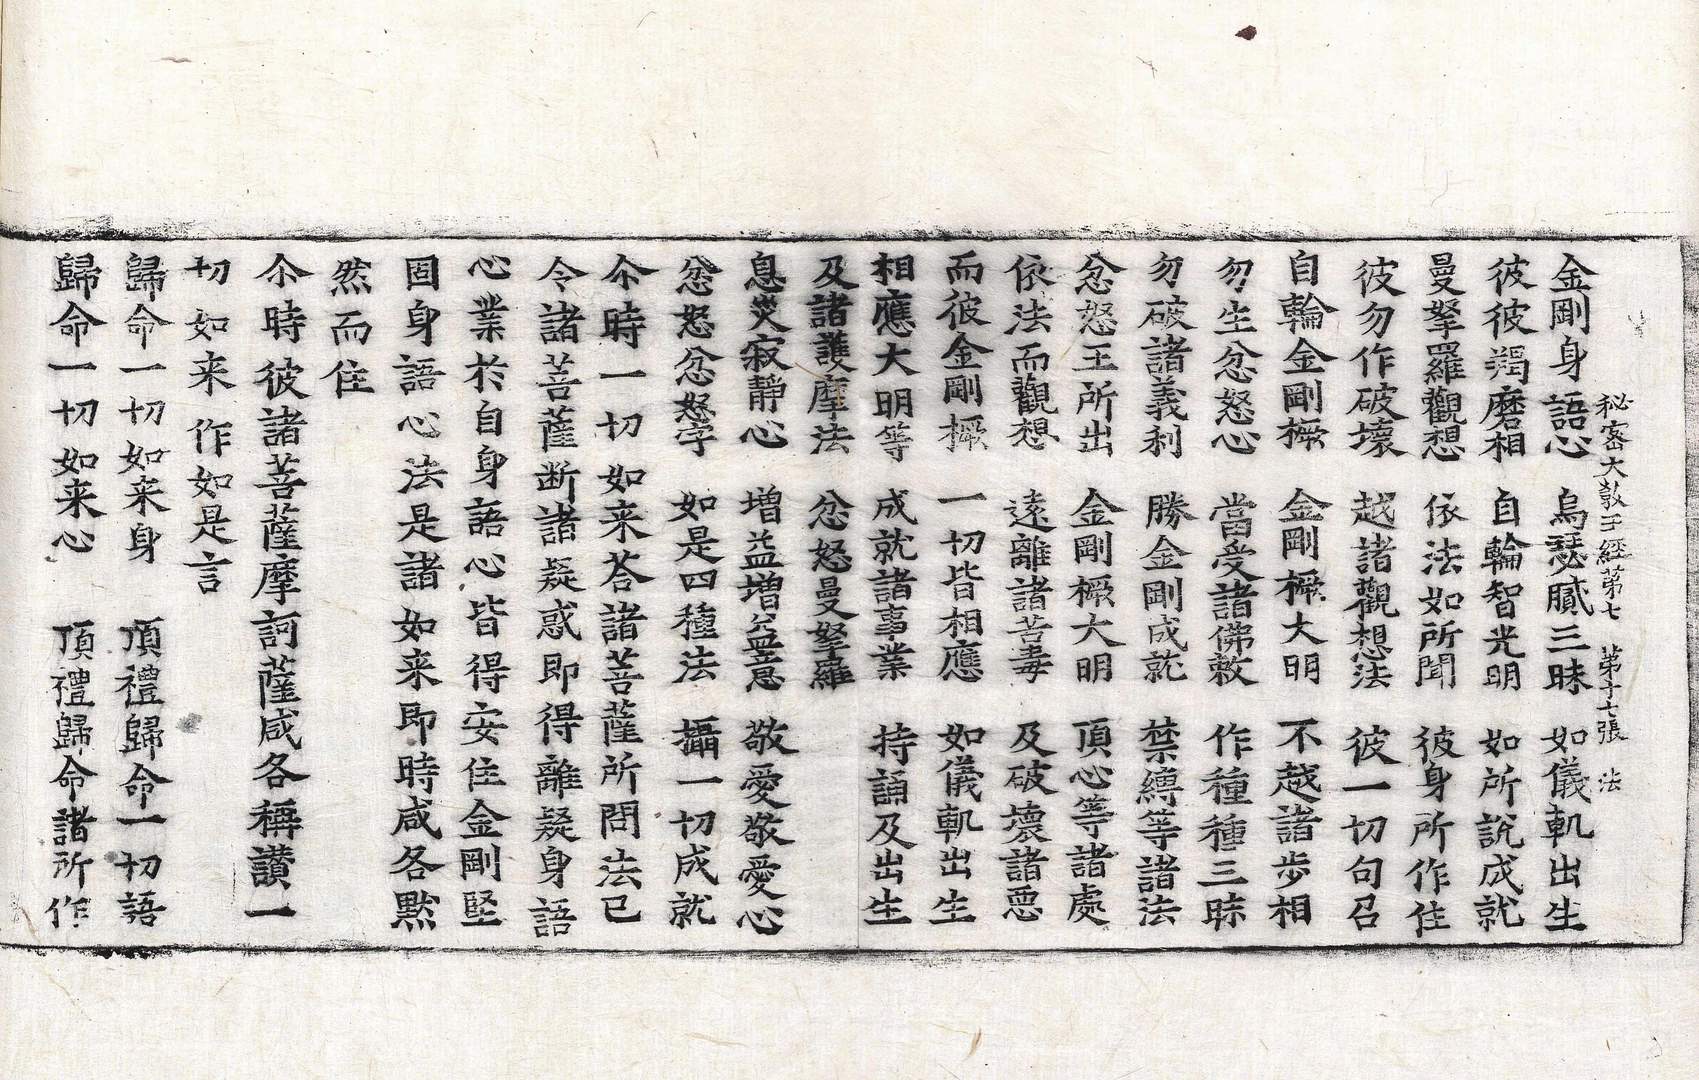 秘密大教王經第七　第十七張　法
金剛身語心　烏瑟膩三昧　如儀軌出生
彼彼羯磨相　自輪智光明　如所說成就
曼拏羅觀想　依法如所聞　彼身所作住
彼勿作破壞　越諸觀想法　彼一切句召
自輪金剛橛　金剛橛大明　不越諸步相
勿生忿怒心　當受諸佛敕　作種種三昧
勿破諸義利　勝金剛成就　禁縛等諸法
忿怒王所出　金剛橛大明　頂心等諸處
依法而觀想　遠離諸苦毒　及破壞諸惡
而彼金剛橛　一切皆相應　如儀軌出生
相應大明等　成就諸事業　持誦及出生
及諸護摩法　忿怒曼拏羅
息災寂靜心　增益增益意　敬愛敬愛心
忿怒忿怒字　如是四種法　攝一切成就
尒時一切如来荅諸菩薩所問法已
令諸菩薩断諸疑惑即得離疑身語
心業於自身語心皆得安住金剛堅
固身語心法是諸如来即時咸各黙
然而住
尒時彼諸菩薩摩訶薩咸各稱讚一
切如来作如是言
歸命一切如来身　頂禮歸命一切語
歸命一切如来心　頂禮歸命諸所作